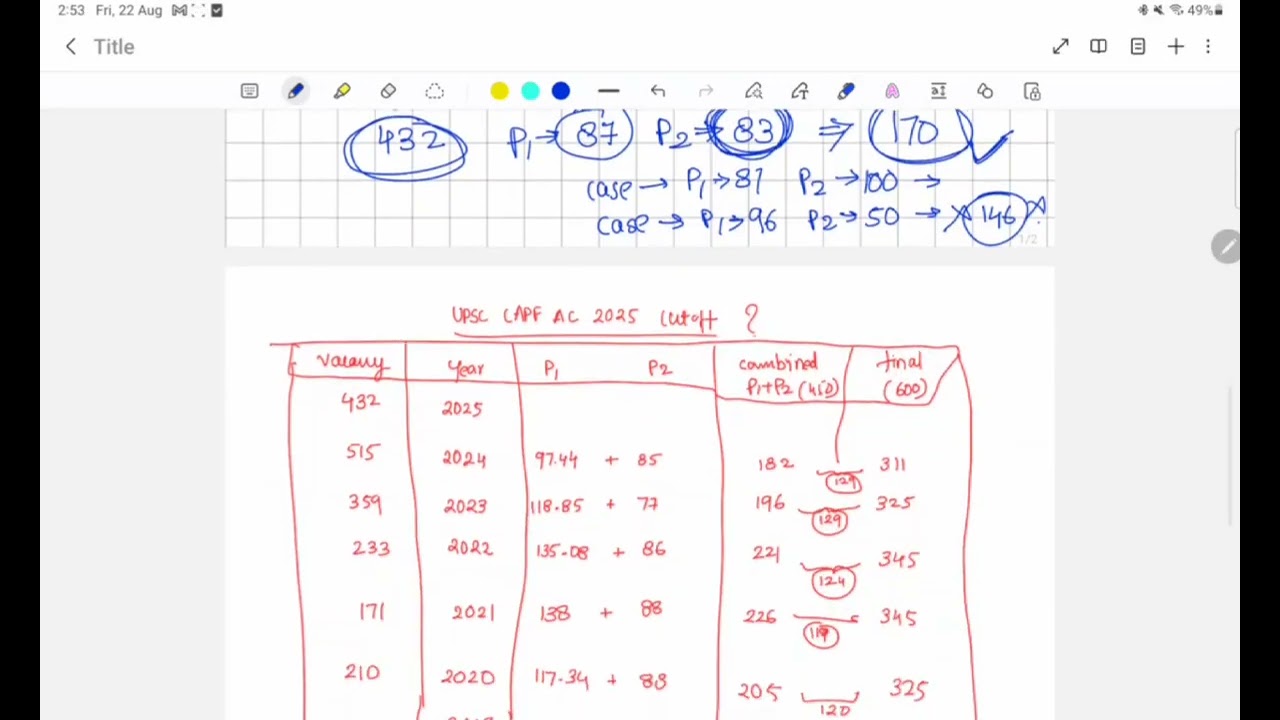 2:53 Fri, 22 Aug
49%
Title
432 P1 → 87 P2 → 83 ⇒ 170 ✓
case → P1 → 87 P2 → 100 →
case → P1 → 96 P2 → 50 → 146
1/2
UPSC CAPF AC 2025 Cutoff ?
Vacancy Year P1 P2 combined P1+P2 (450) final (600)
432 2025
515 2024 97.44 + 85 182 129 311
359 2023 118.85 + 77 196 129 325
233 2022 135.08 + 86 221 124 345
171 2021 138 + 88 226 119 345
210 2020 117.34 + 88 205 120 325